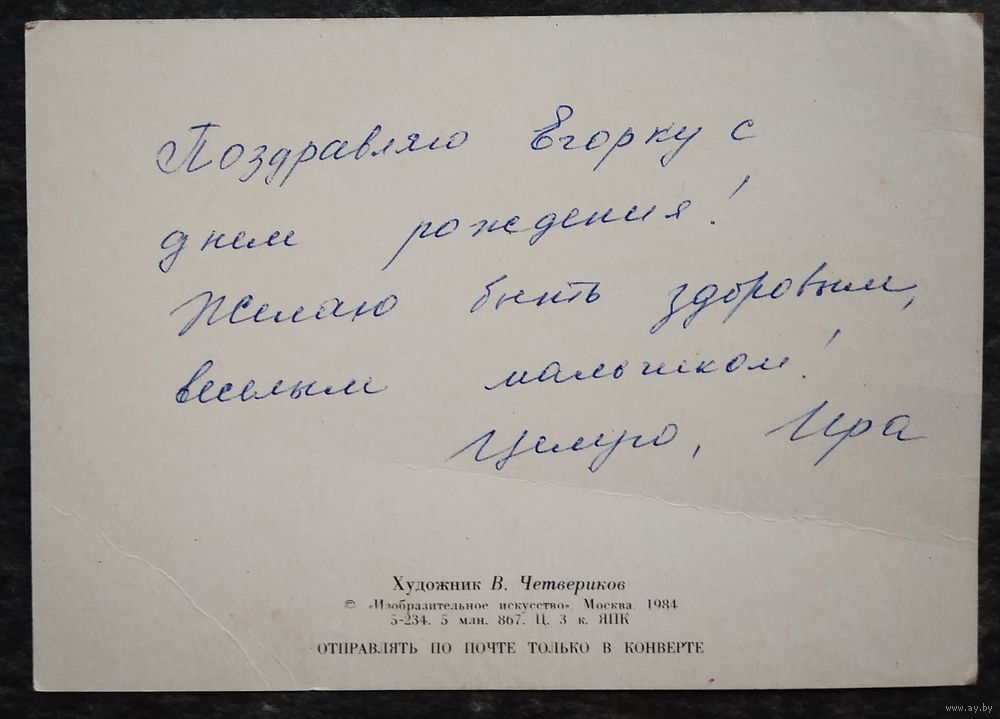 Поздравляю Егорку с
днем рождения!
Желаю быть здоровым,
веселым мальчиком!
Целую, Ира
Художник В. Четвериков
© «Изобразительное искусство». Москва. 1984
5-234. 5 млн. 867. Ц. 3 к. ЯПК
ОТПРАВЛЯТЬ ПО ПОЧТЕ ТОЛЬКО В КОНВЕРТЕ
www.ay.by